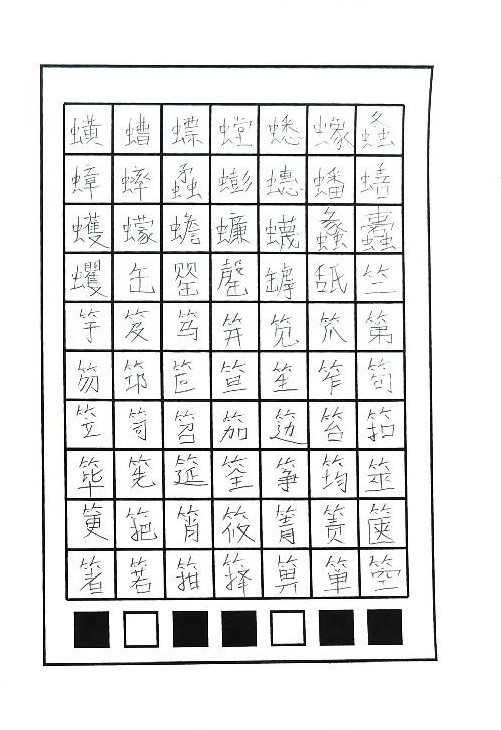 蟥螬螵螳蟋蟓螽
蟑蟀蟊蟛蟪蟠蟮
蠖蠓蟾蠊蠛蠡蠹
蠼缶罂罄罅舐竺
竽笈笃笄笕笊笫
笏筇笸笪笙笮笱
笠笥笤笳笾笞筘
筚筅筵筌筝筠筮
筻筢筲筱箐箦箧
箸箬箝箨箅箪箜